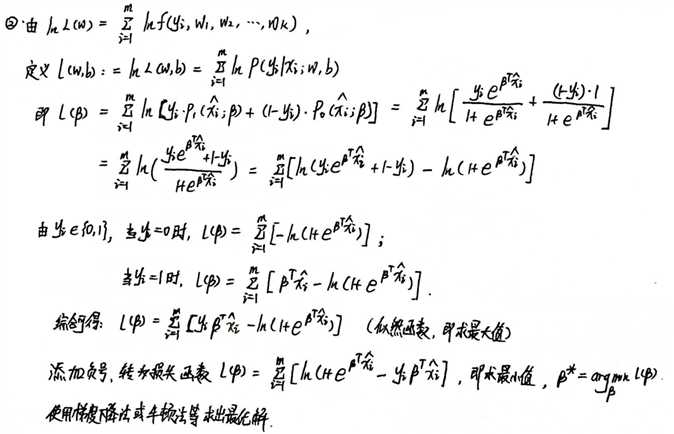 ② 由 ln L(w) = Σ_{i=1}^{m} ln f(y_i, w_1, w_2, ⋯, w_k),
定义 L(w,b) := ln L(w,b) = Σ_{i=1}^{m} ln P(y_i|x_i; w,b)
即 L(β) = Σ_{i=1}^{m} ln [y_i·p_1(x̂_i;β) + (1-y_i)·p_0(x̂_i;β)] = Σ_{i=1}^{m} ln [ y_i e^{β^T x̂_i} / (1+e^{β^T x̂_i}) + (1-y_i)·1 / (1+e^{β^T x̂_i}) ]
= Σ_{i=1}^{m} ln( (y_i e^{β^T x̂_i} + 1-y_i) / (1+e^{β^T x̂_i}) ) = Σ_{i=1}^{m} [ln(y_i e^{β^T x̂_i} + 1-y_i) - ln(1+e^{β^T x̂_i})]
由 y_i∈{0,1}, 当 y_i=0 时, L(β) = Σ_{i=1}^{m} [-ln(1+e^{β^T x̂_i})] ;
当 y_i=1 时, L(β) = Σ_{i=1}^{m} [β^T x̂_i - ln(1+e^{β^T x̂_i})] .
综合可得: L(β) = Σ_{i=1}^{m} [y_i β^T x̂_i - ln(1+e^{β^T x̂_i})] (似然函数, 即求最大值)
添加负号, 转为损失函数 L(β) = Σ_{i=1}^{m} [ln(1+e^{β^T x̂_i} - y_i β^T x̂_i], 即求最小值, β* = argmin_β L(β).
使用梯度下降法或牛顿法等求出最优解.